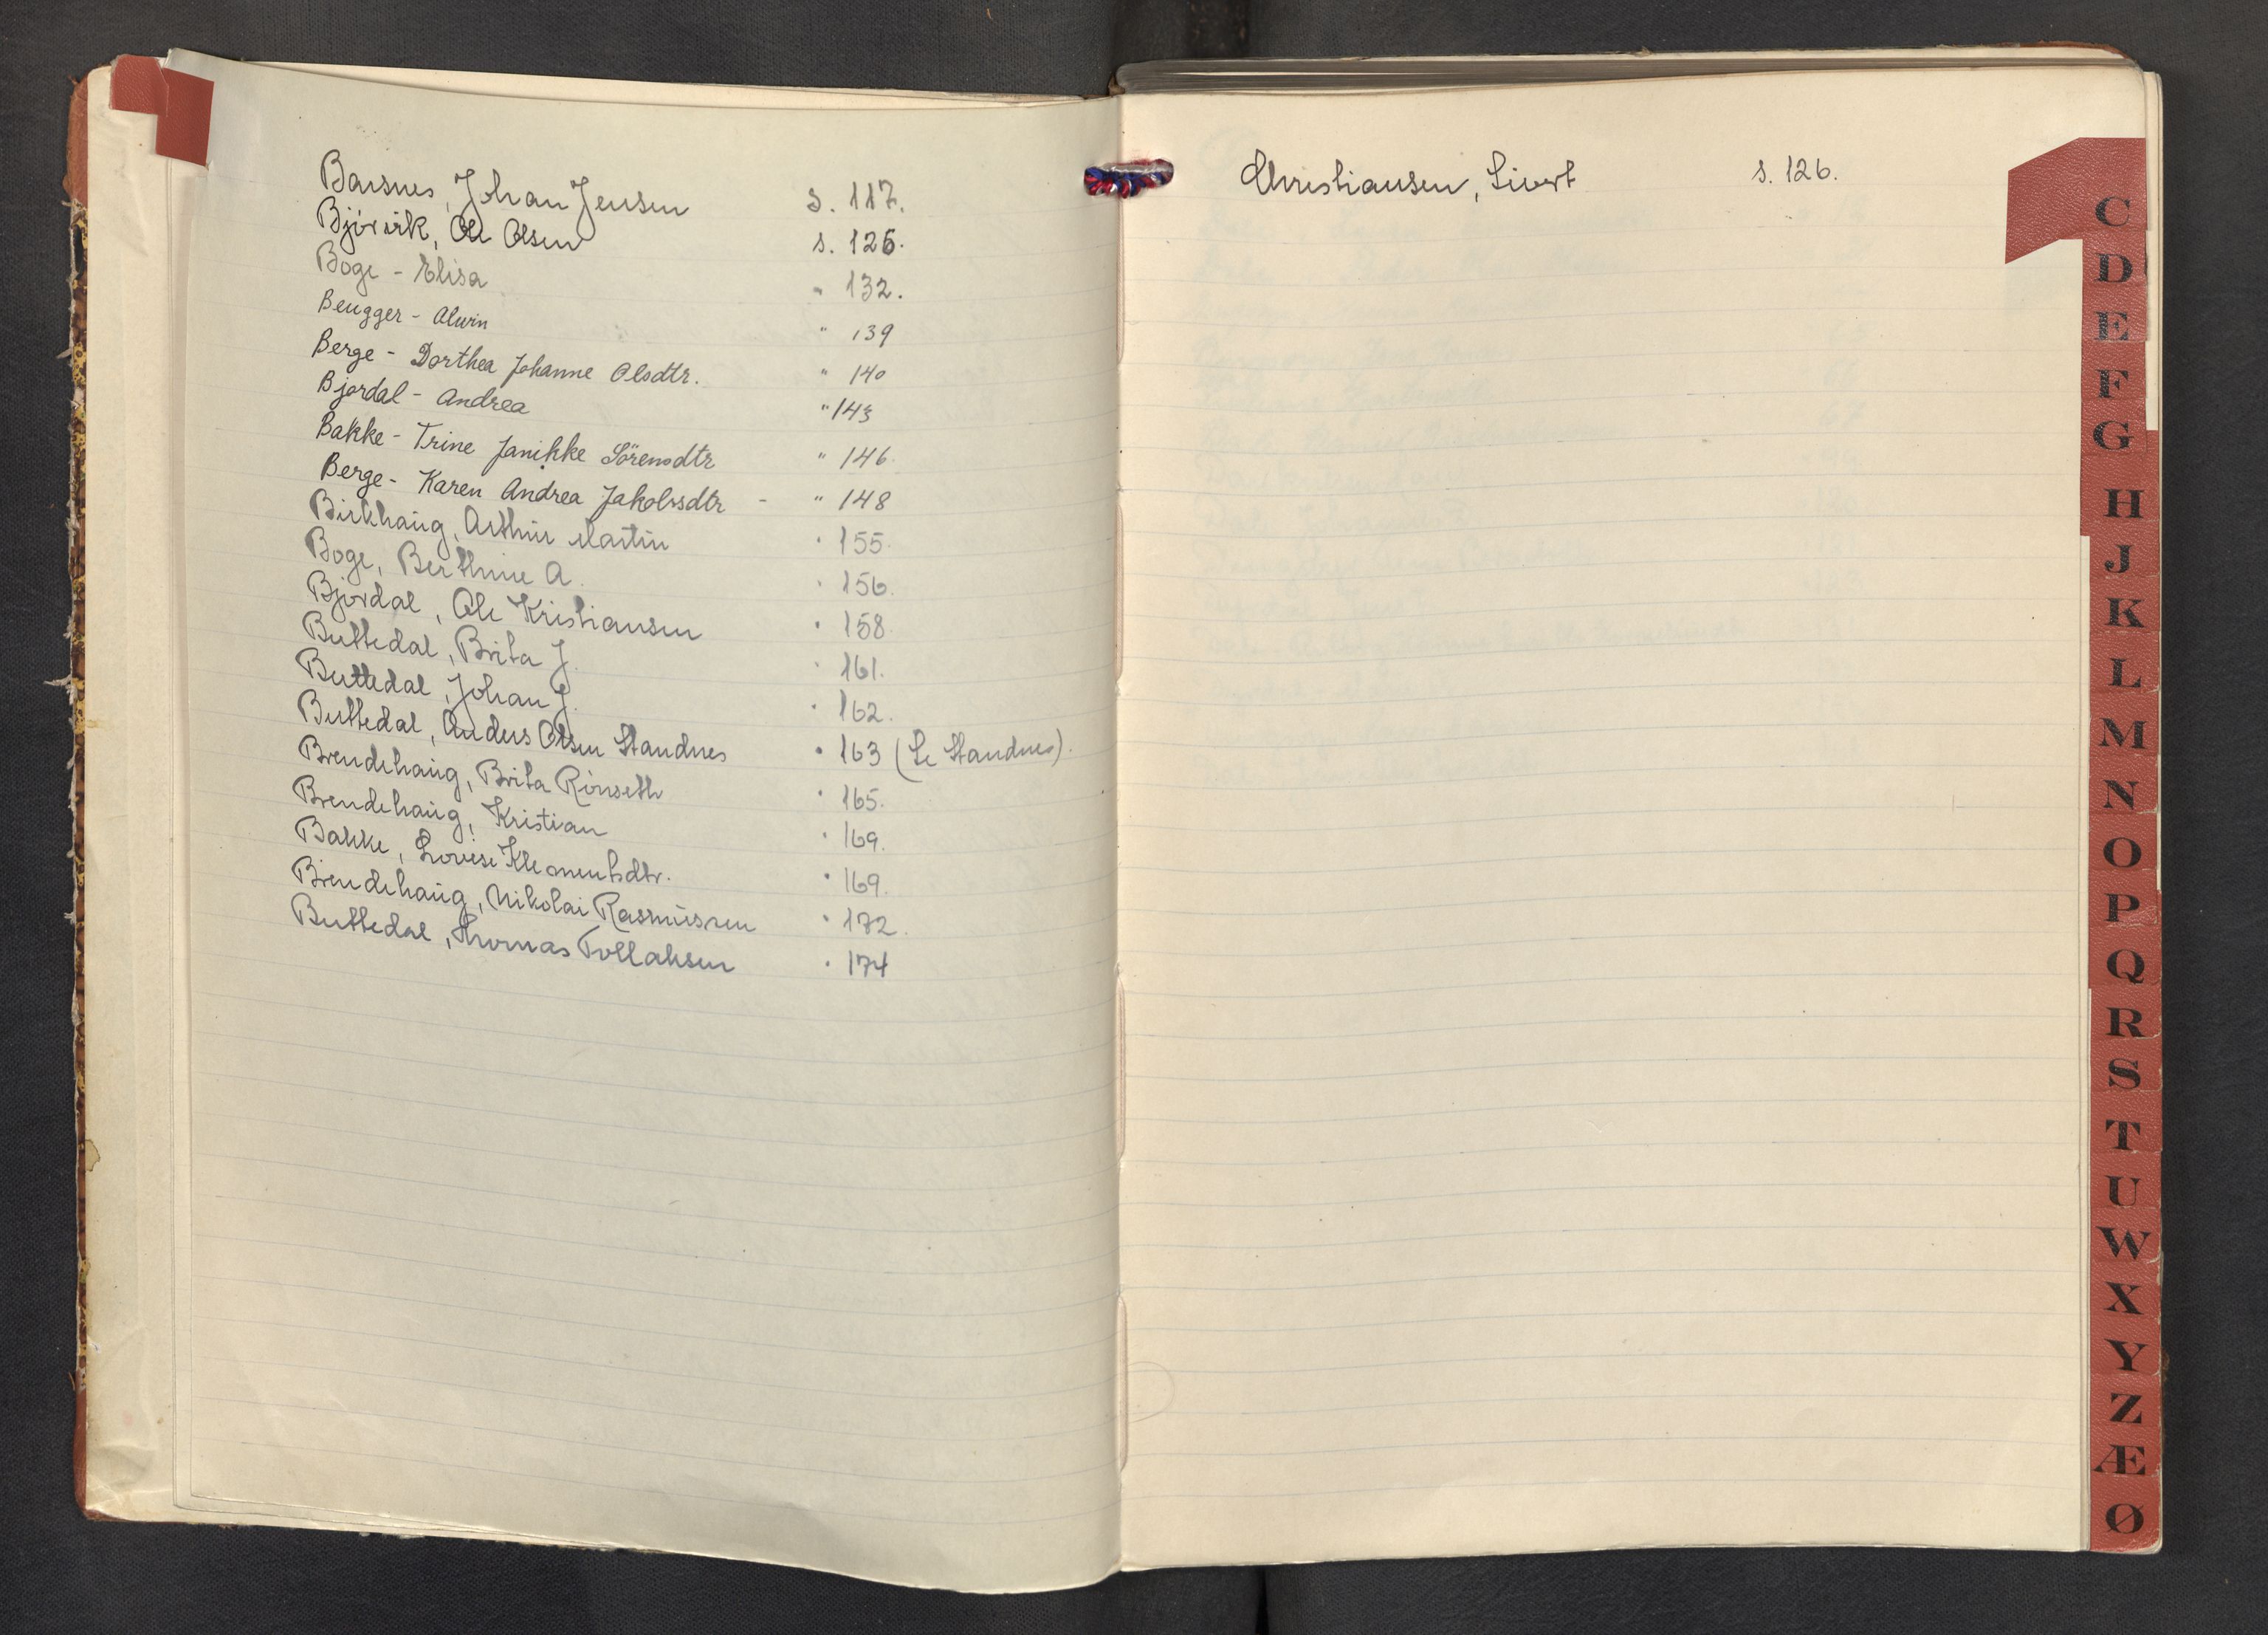 Barsnes, Johan Jensen s. 117.
Bjørvik, Ole Olsen s. 126.
Boge - Elisa " 132.
Beugger - Alwin " 139
Berge - Dorthea Johanne Olsdtr. " 140
Bjordal - Andrea " 143
Bakke - Trine Janikke Sörensdtr " 146.
Berge - Karen Andrea Jakobsdtr - " 148
Birkhaug, Arthur Martin " 155.
Boge, Berthine A. " 156.
Bjordal, Ole Kristiansen " 158.
Buttedal, Brita J. " 161.
Buttedal, Johan J. " 162.
Buttedal, Anders Olsen Standnes " 163 (Se Standnes).
Brendehaug, Brita Rönseth " 165.
Brendehaug, Kristian " 169.
Bakke, Lovise Klementsdtr. " 169.
Brendehaug, Nikolai Rasmussen " 172.
Buttedal, Thomas Tollaksen " 174
Christiansen, Sivert s. 126.
C
D
E
F
G
H
J
K
L
M
N
O
P
Q
R
S
T
U
W
X
Y
Z
Æ
Ø